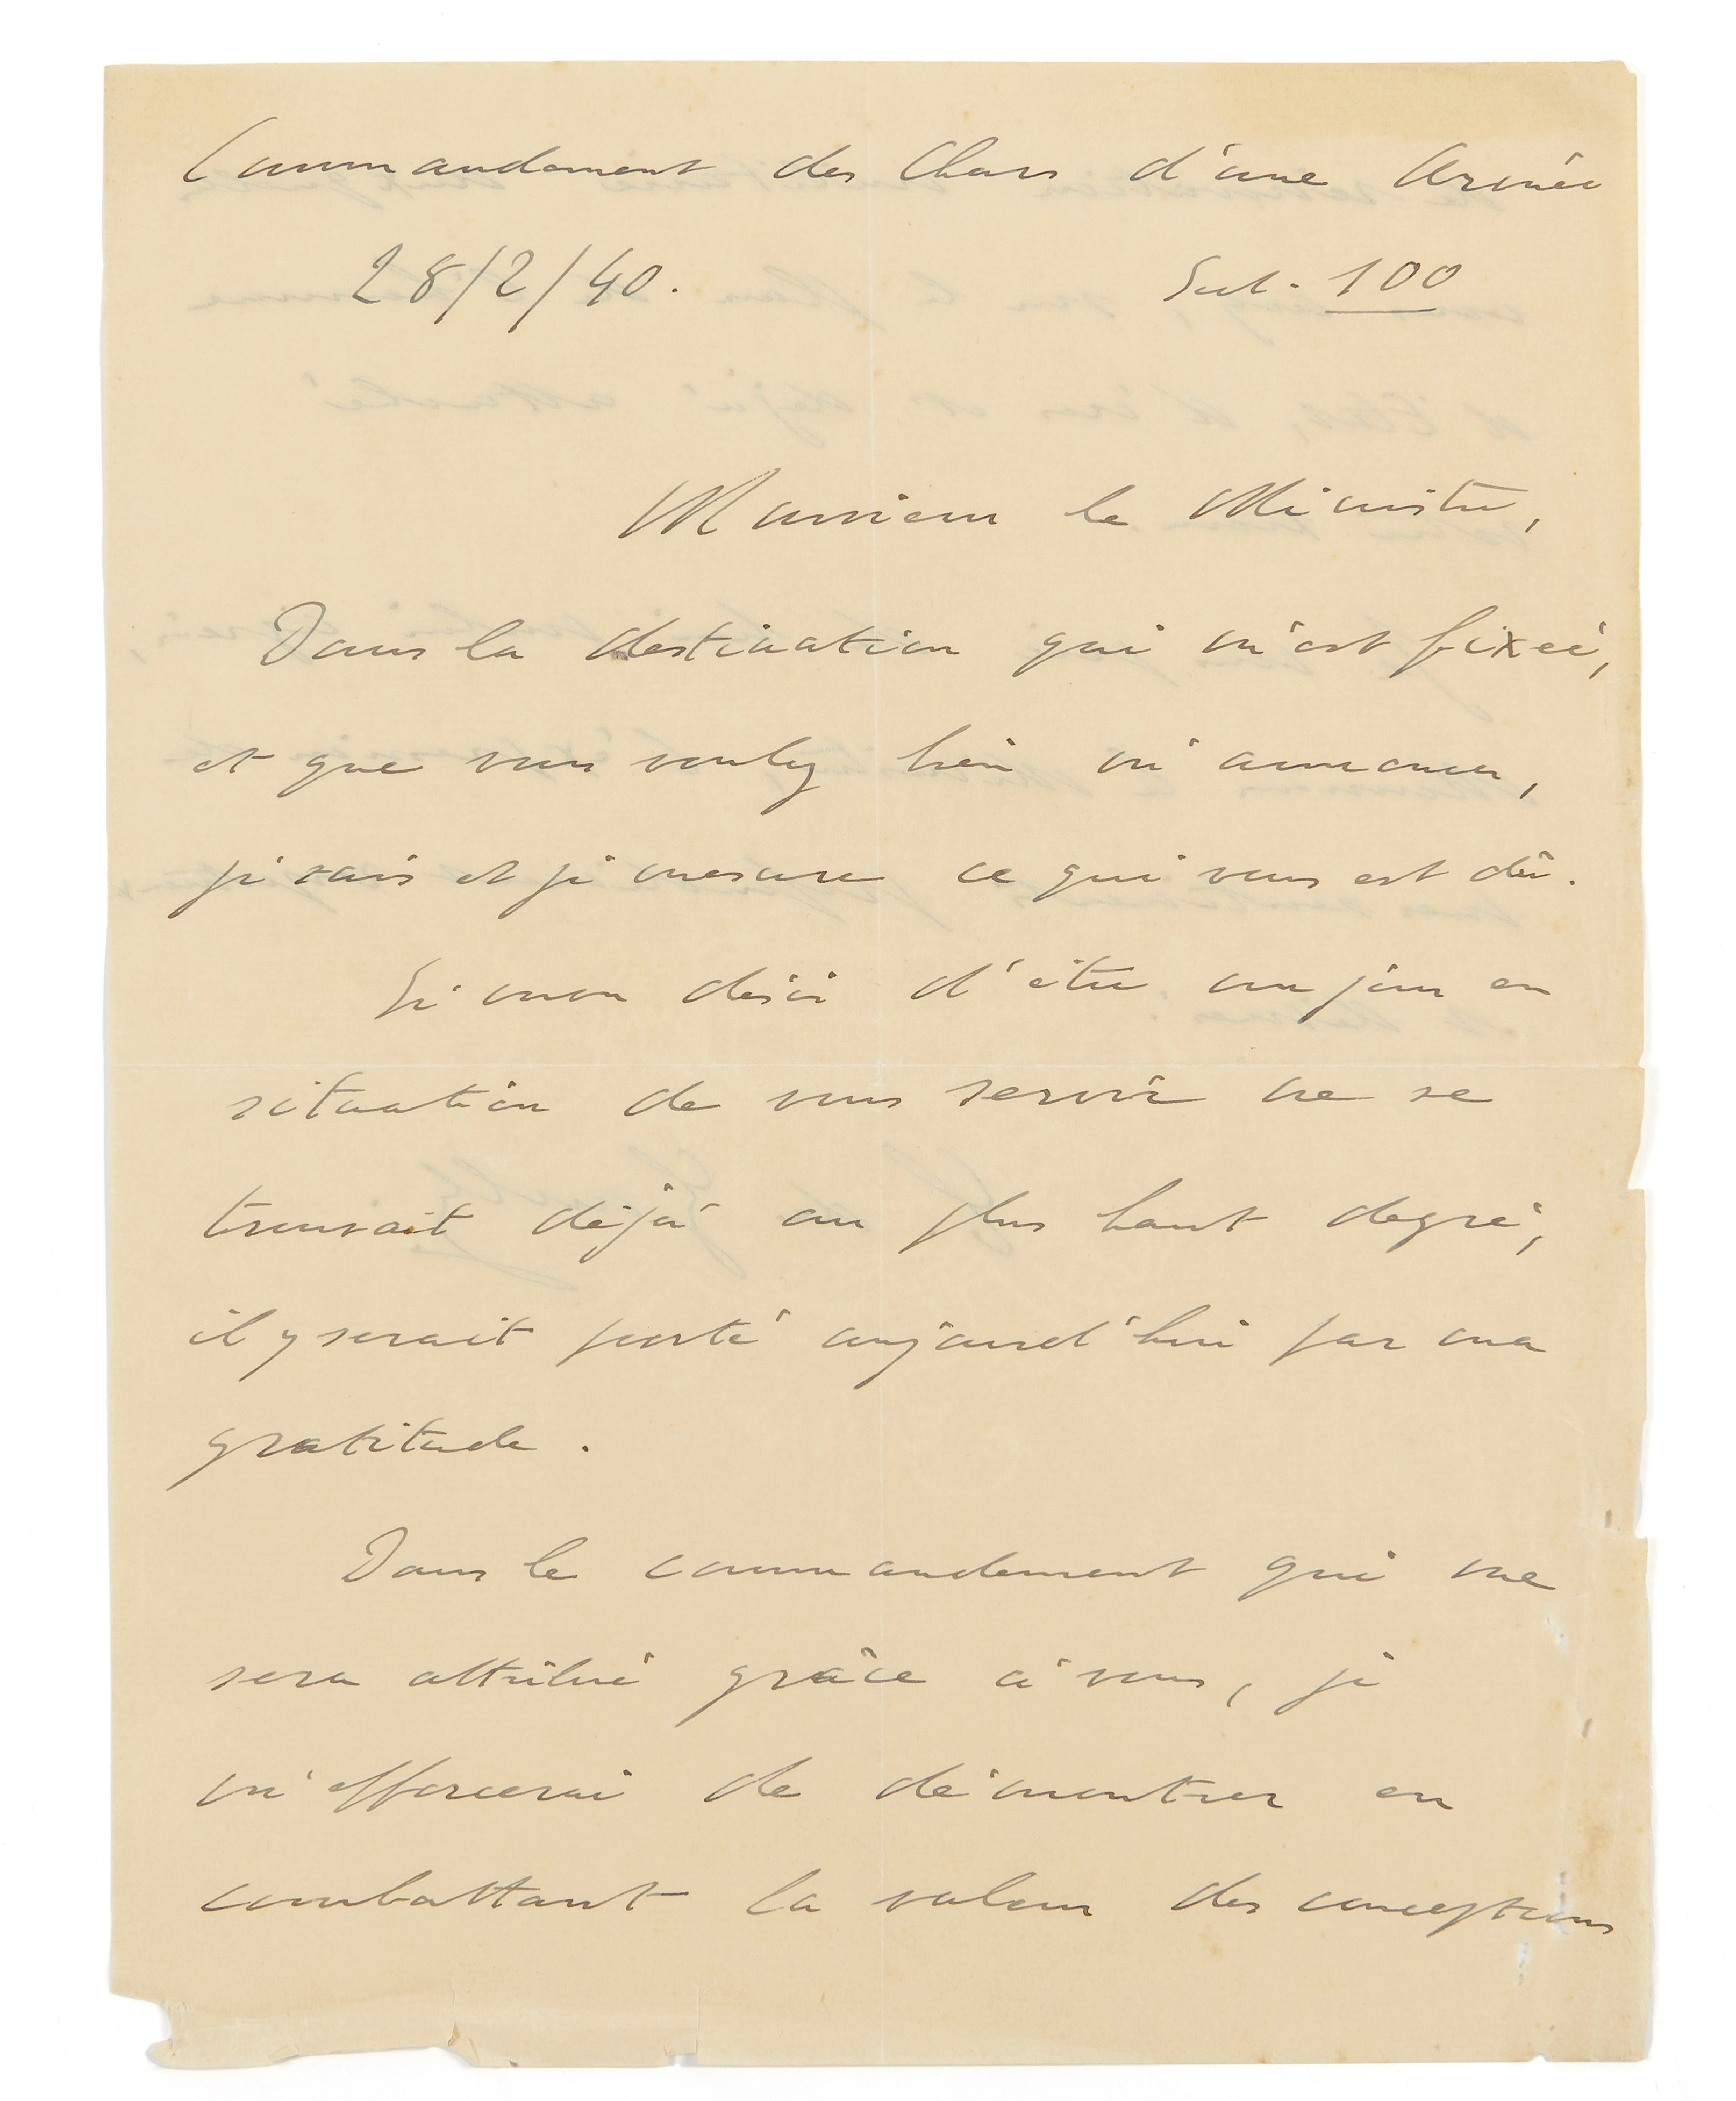 Commandement des Chars d'une Armée
28/2/40. Sect. 100
Monsieur le Ministre,
Dans la destination qui m'est fixée,
et que vous voulez bien m'annoncer,
je sais et je mesure ce qui vous est dû.
Si mon désir d'être un jour en
situation de vous servir ne se
trouvait déjà au plus haut degré,
il y serait porté aujourd'hui par ma
gratitude.
Dans le commandement qui me
sera attribué grâce à vous, je
m'efforcerai de démontrer en
combattant la valeur des conceptions